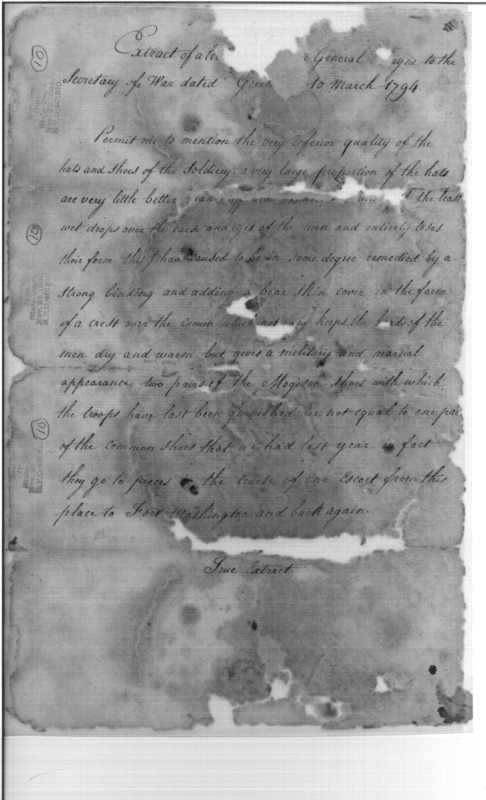 Extract of a General to the
Secretary of War dated 10 March 1794.
Permit me to mention the very inferior quality of the
hats and shoes of the Soldiery. a very large proportion of the hats
are very little better the least
wet drops over the and of the men and entirely loses
their form this I have caused to be in some degree remedied by a
strong binding and adding a bear skin cover in the form
of a crest over the crown which not only keeps the of the
men dry and warm but gives a military and martial
appearance, two pairs of the shoes with which
the troops have last been furnished are not equal to one pair
of the common shoes that we had last year in fact
they go to pieces the of one Escort from this
place to Fort Washington and back again.
True Extract
10
10
10